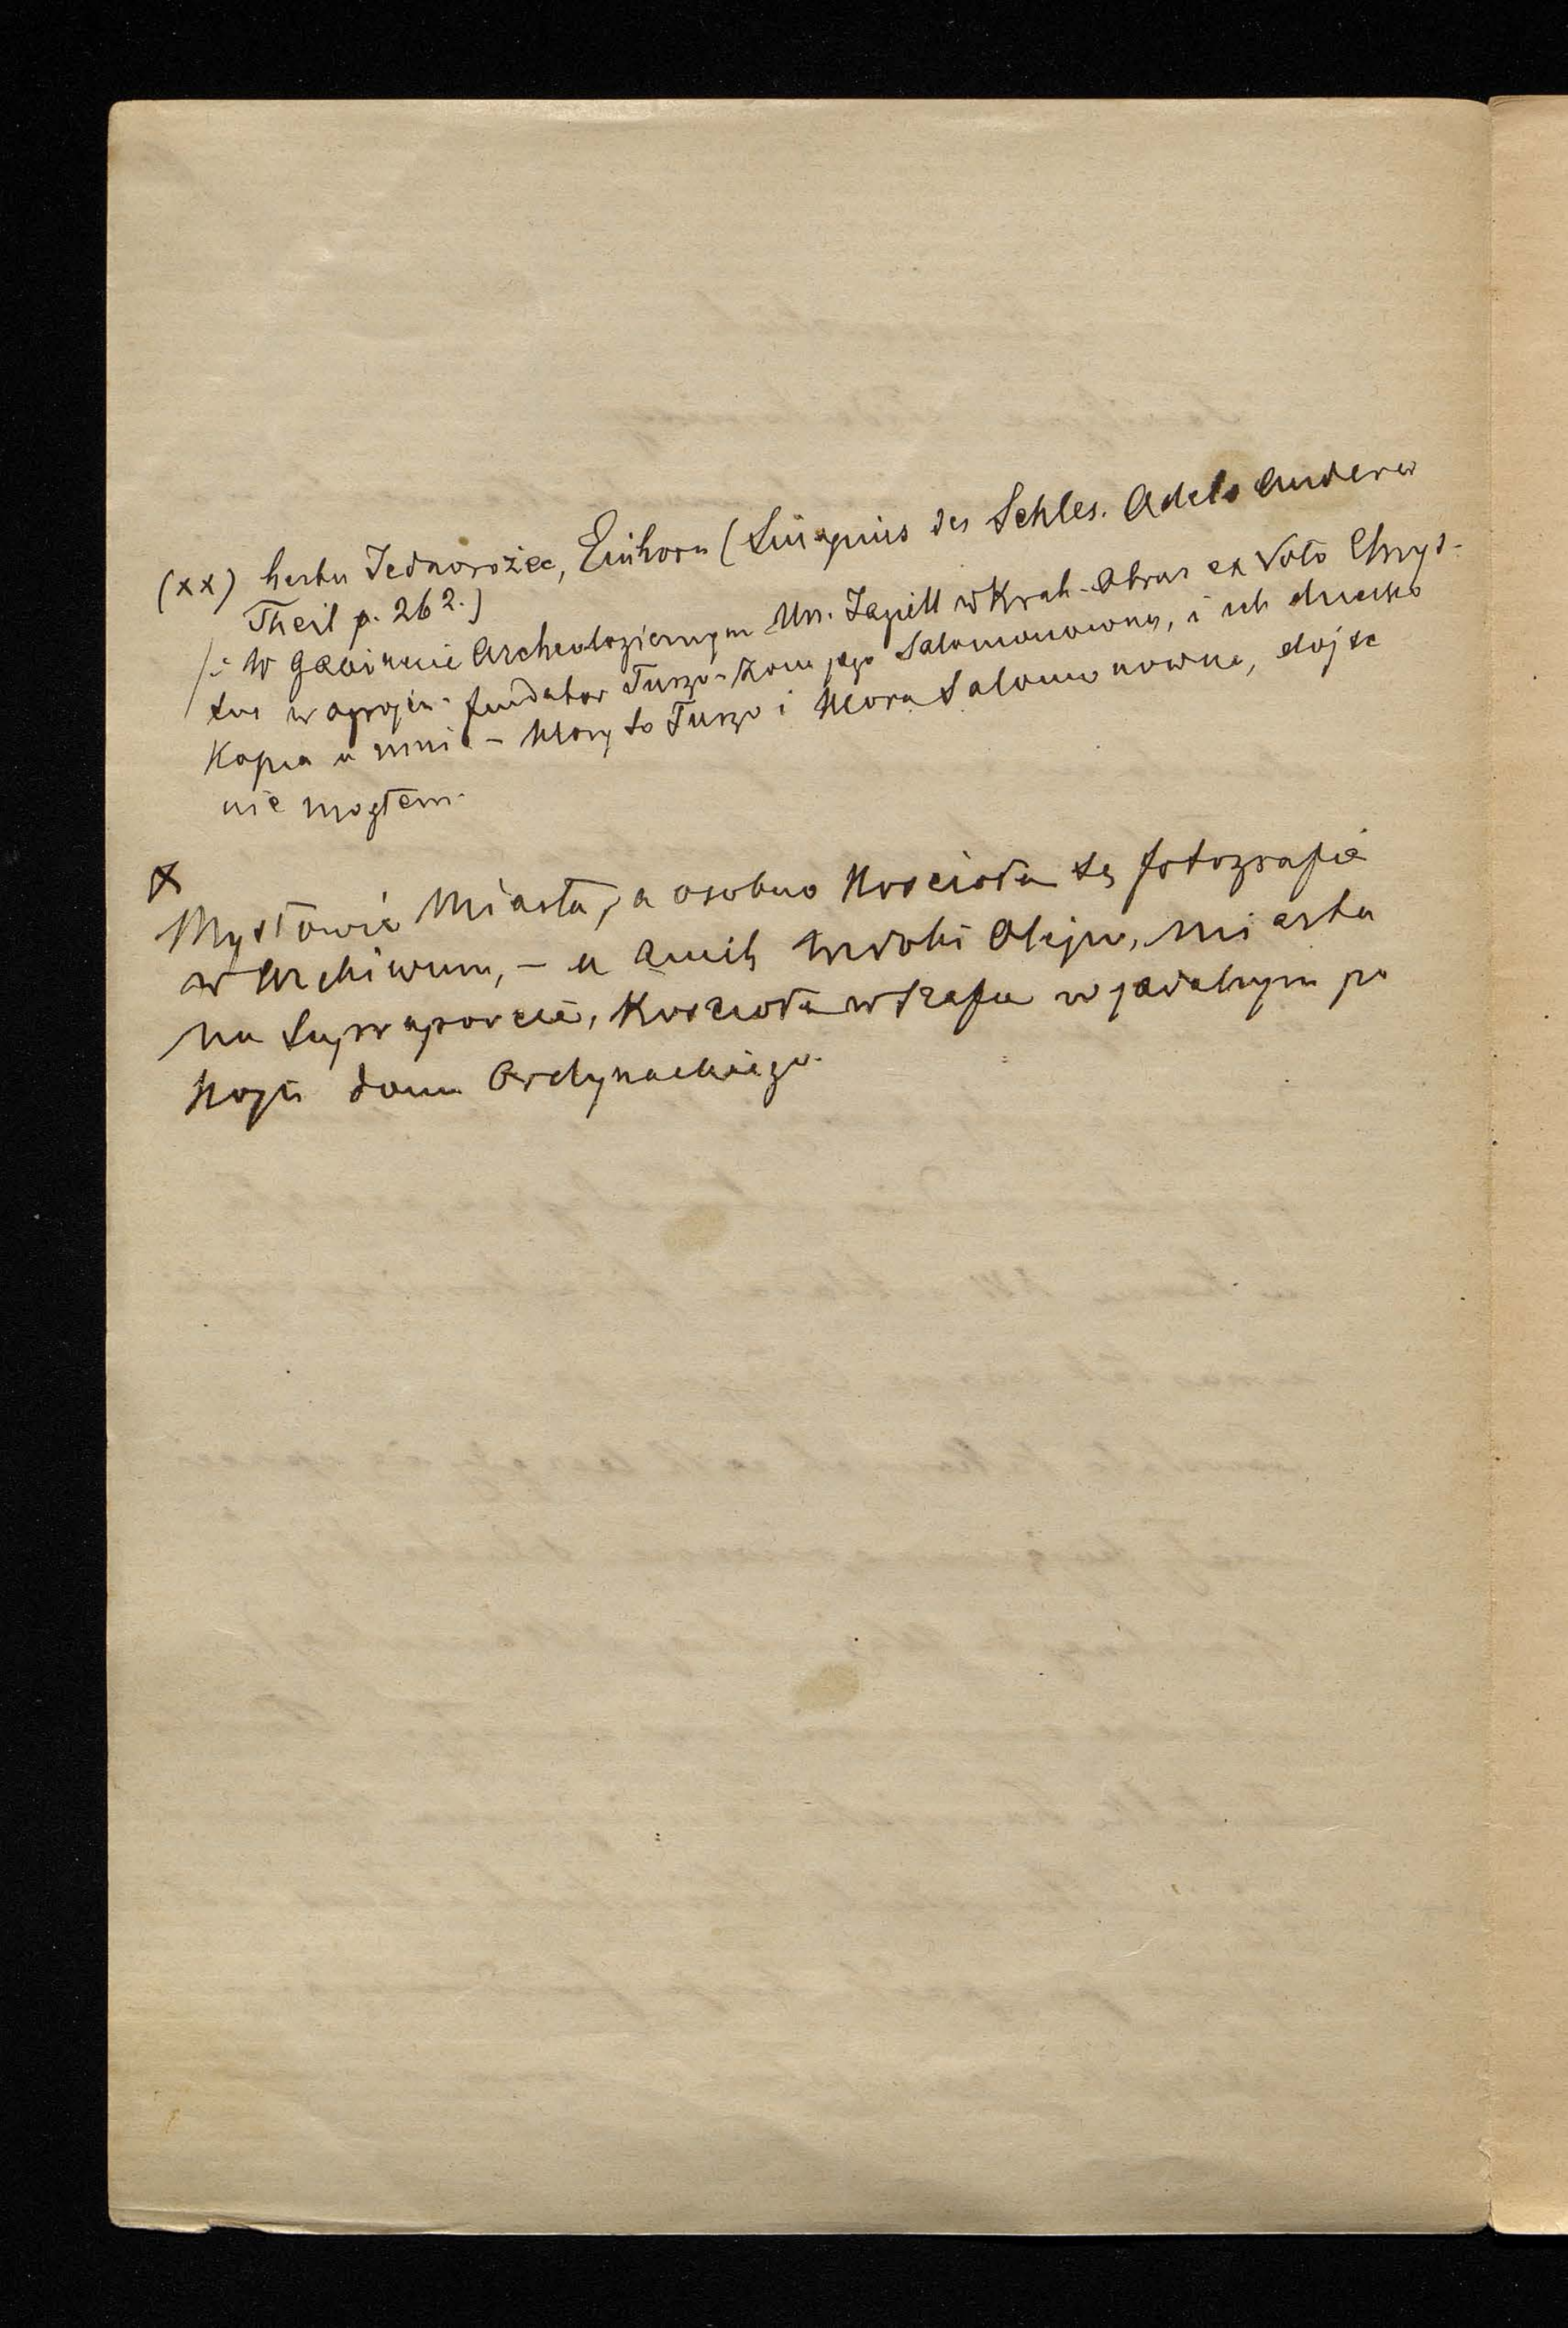 (xx) herbu Jednorożec, Einhorn (Sinapius des Schles. Adels anderer
Theil p. 262.)
/: W Gabinecie Archeologicznym Un. Jagiell w Krak. Obraz ex Voto Chrys-
tus w ogrojcu. fundator Turzo - żona jego Salomonowna, i ich dziecko
Kopia u mnie - ktory to Turzo i ktora Salomonowna, dojść
nie mogłem.
x
Mysłowic Miasta, a osobno Kościoła są fotografie
w Archiwum, - u Amich widoki olejno, miasta
na supraporcie, Kościoła w szafie w jadalnym po
koju domu Ordynackiego.